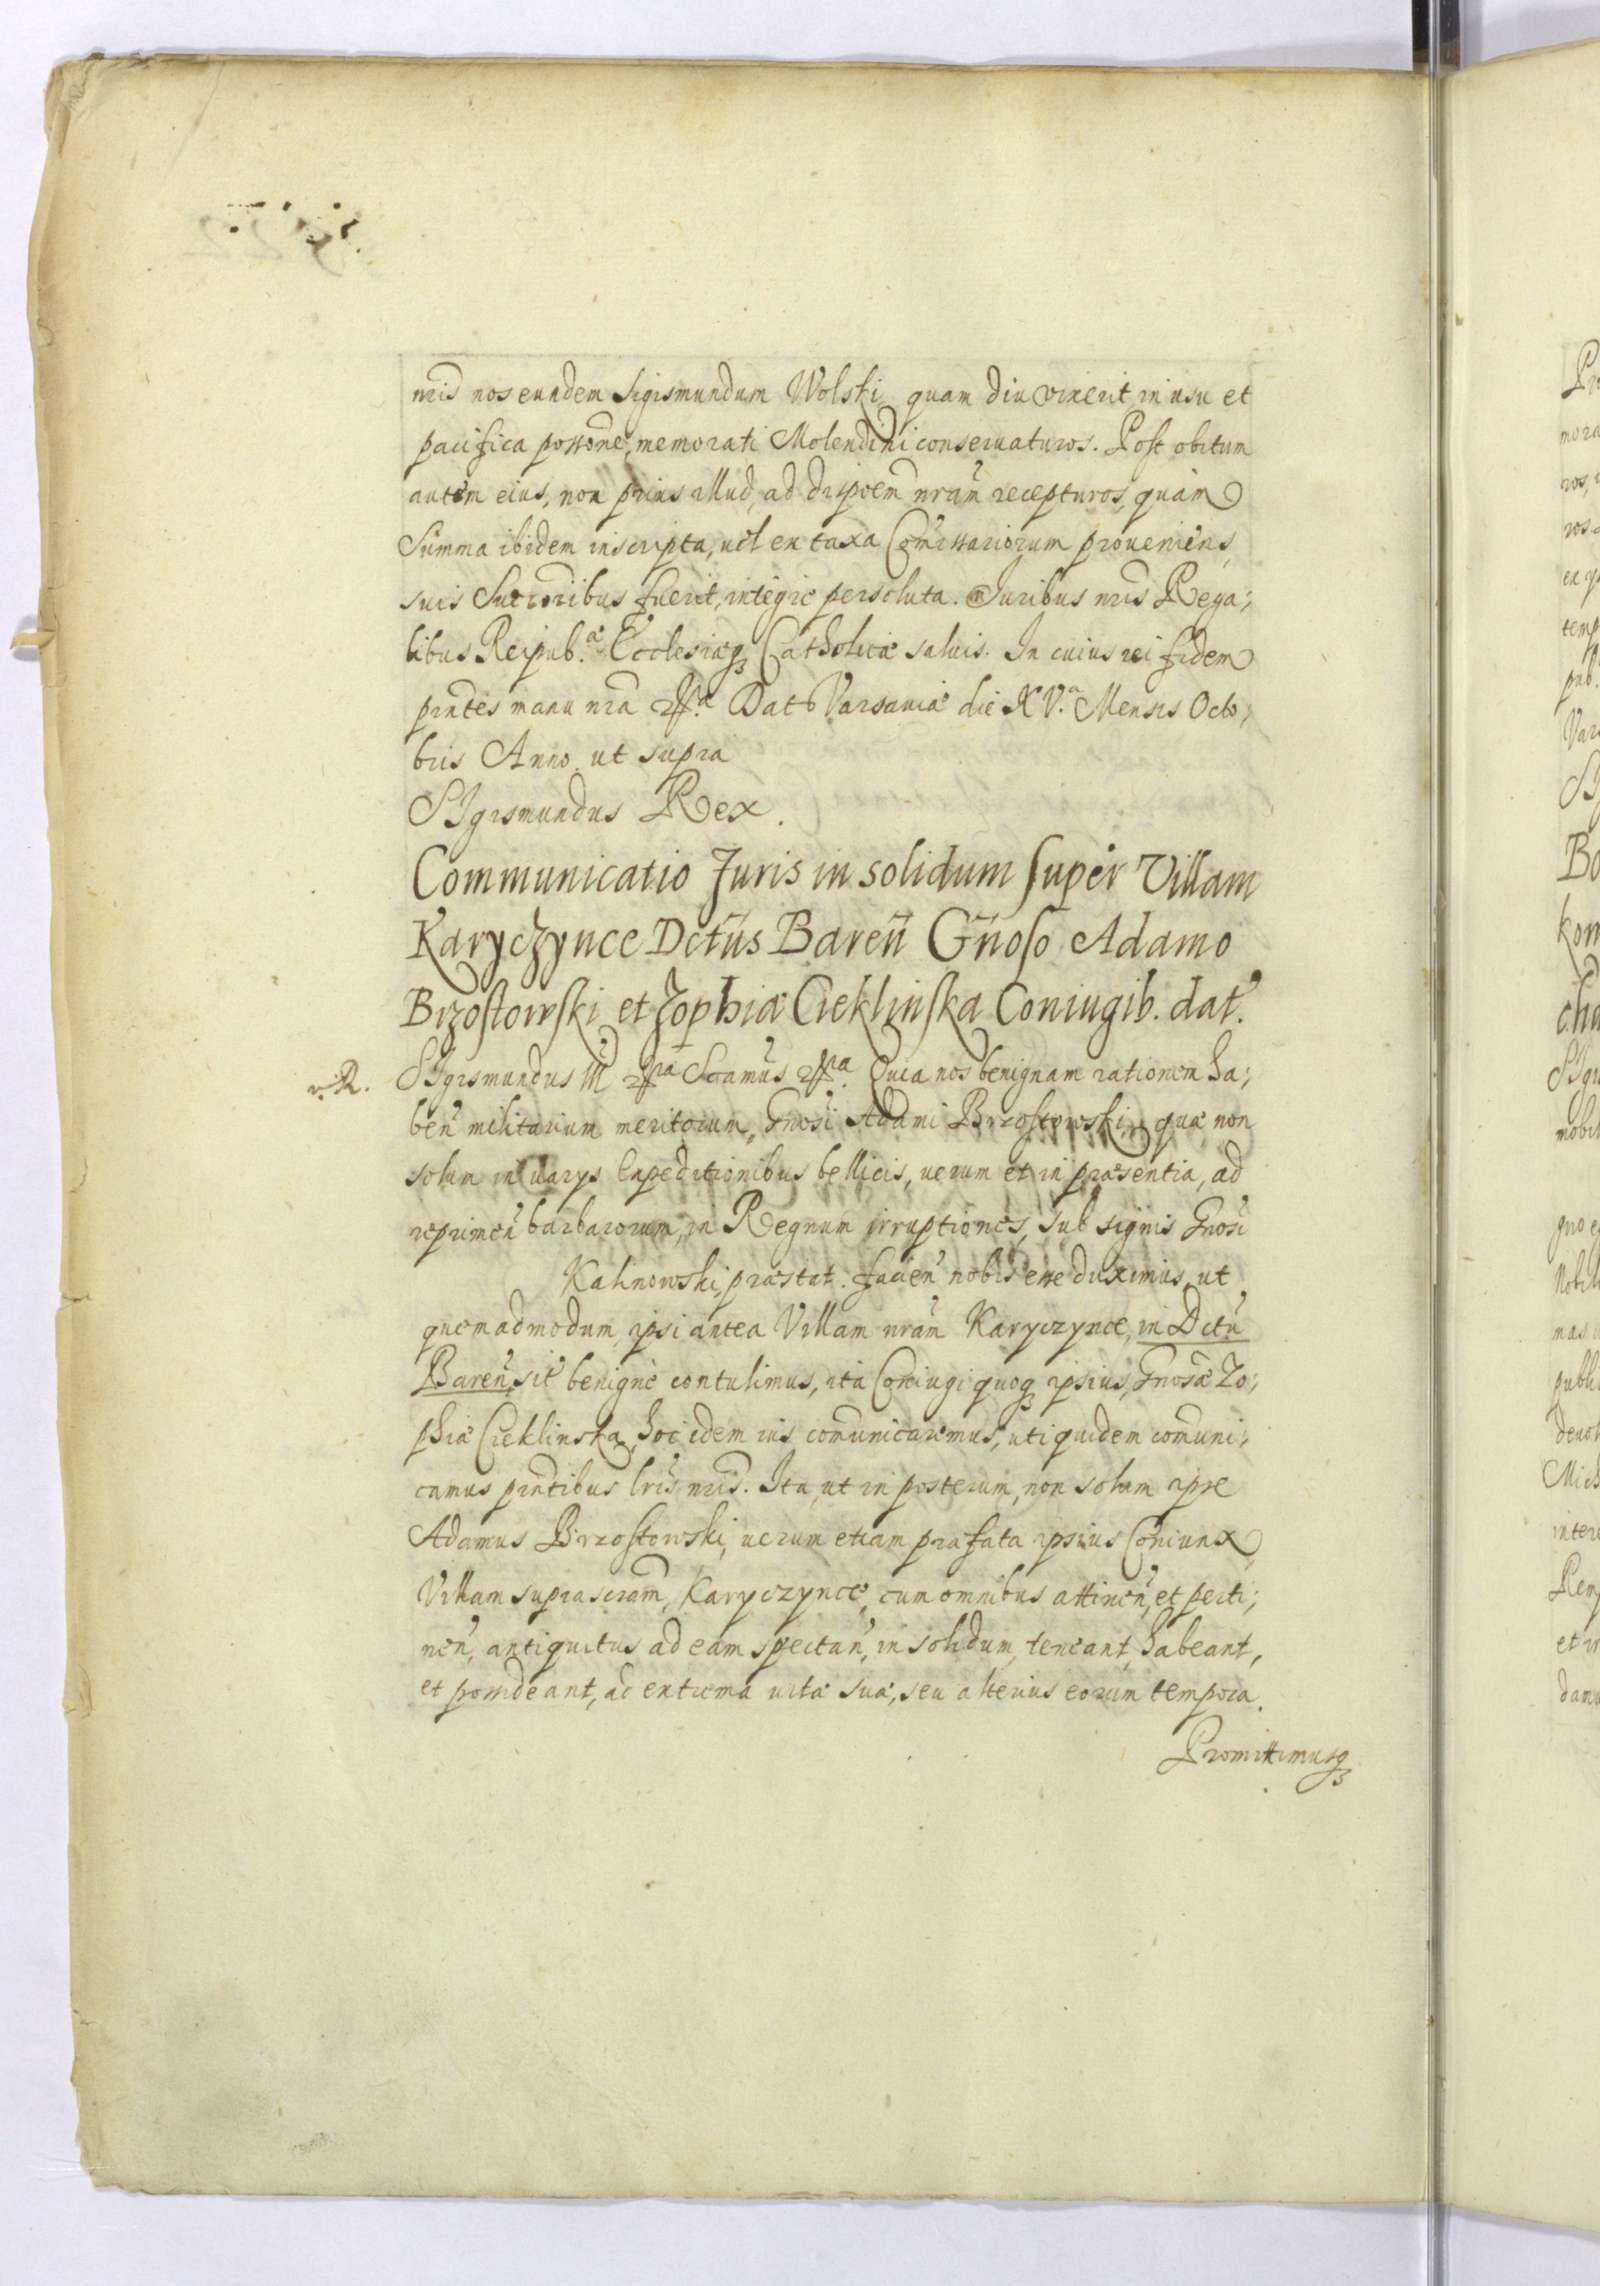 nris nos eundem Sigismundum Wolski, quam diu vixerit, in usu et
pacifica possone, memorati Molendini conseruaturos. Post obitum
autem eius, non prius illud, ad dispoem nram recepturos, quam
Summa ibidem inscripta, uel ex taxa Comissariorum proueniens,
suis Succoribus fuerit, integre persoluta. Juribus nris Rega;
libus Reipub.æ Ecclesiæq; Catholicæ saluis. In cuius rei fidem
pntes manu nra Dat Varsauiæ die XV.a Mensis Octo;
bris Anno ut supra
SIgismundus Rex.
Communicatio Juris in solidum super Villam
Karyczynce Dctus Baren Gnoso Adamo
Brzostowski et Zophiæ Cieklinska Coniugib. dat.
SIgismundus III Quia nos benignam rationem ha;
ben militarium meritorum, Gnosi Adami Brzostowski, quæ non
solum in uarys Expeditionibus bellicis, uerum et in præsentia, ad
reprimen barbarorum, in Regnum irruptiones, sub signis Gnosi
Kalinowski, præstat. facien nobis esse duximus, ut
quemadmodum, ipsi antea Villam nram Karyczynce, in Dctu
Baren, sit benigne contulimus, ita Coniugi quoq; ipsius, Gnosæ Zo;
phiæ Cieklinska, hoc idem ius comunicaremus, uti quidem comuni;
camus pntibus lris nris. Ita, ut in posterum, non solum ipse
Adamus Brzostowski, uerum etiam præfata ipsius Coniunx,
Villam suprascram, Karyczynce, cum omnibus attinen, et perti;
nen, antiquitus ad eam spectan, in solidum, teneant, habeant,
et possideant, ad extrema uitæ suæ, seu alterius eorum tempora.
Promittimusq;